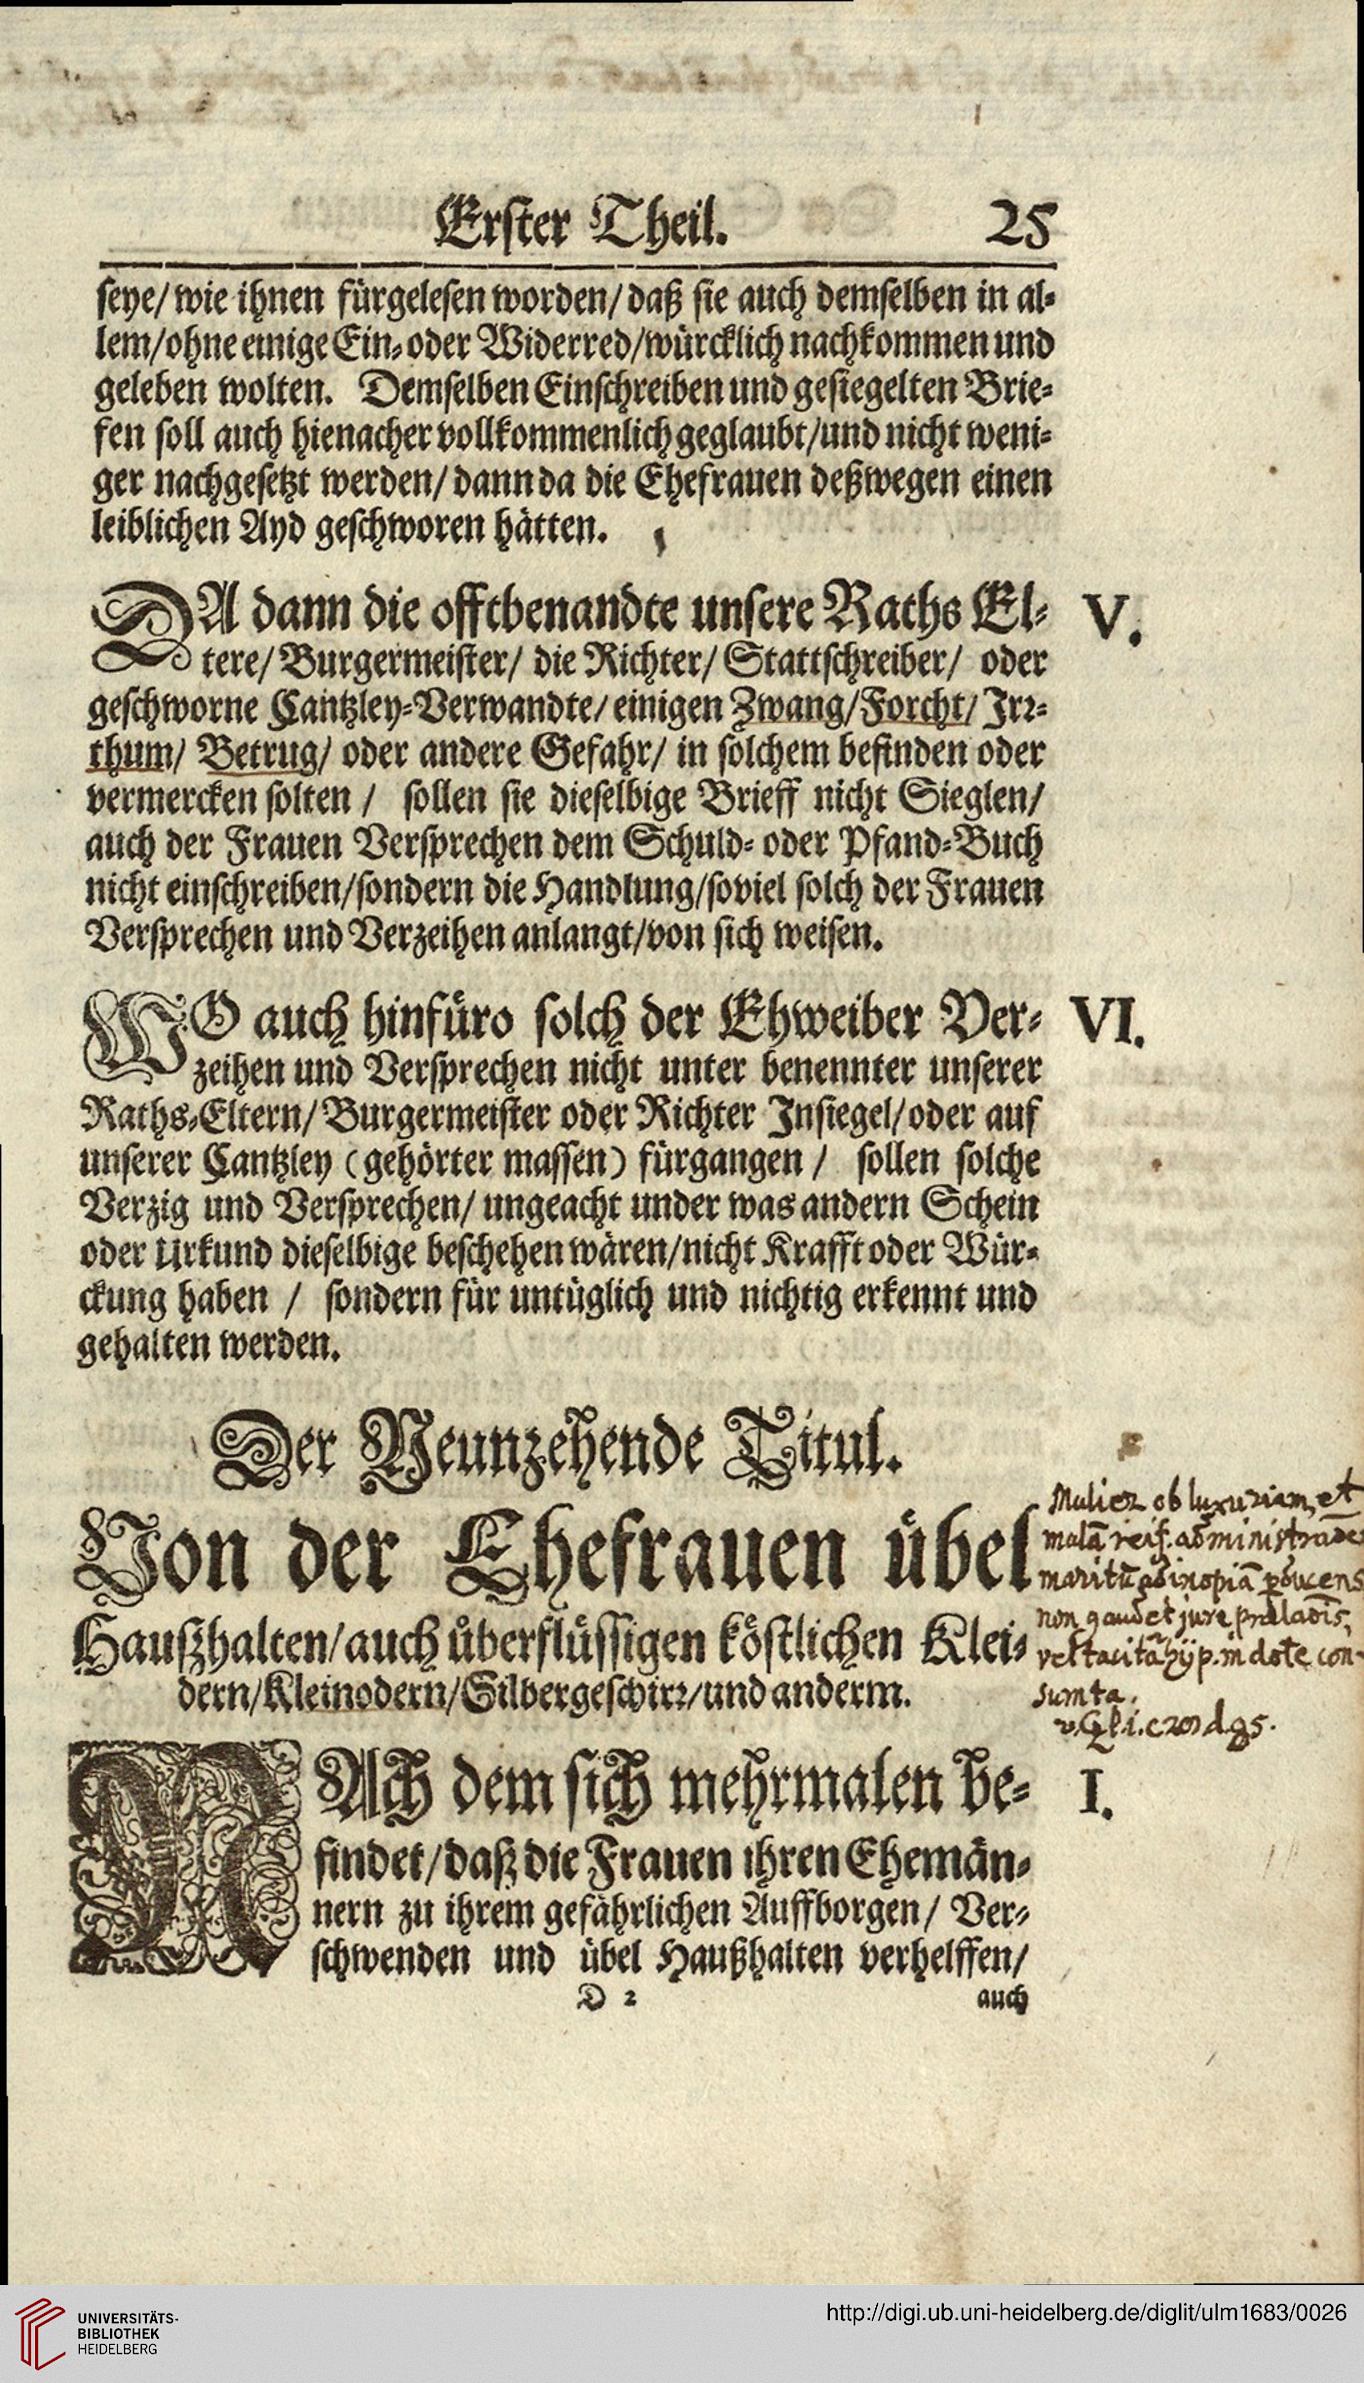 Erster Theil. 25
seye/ wie ihnen fürgelesen worden/ daß sie auch demselben in al-
lem/ ohne einige Ein- oder Widerred/ würcklich nachkommen und
geleben wolten. Demselben Einschreiben und gesiegelten Brie-
fen soll auch hienacher vollkommenlich geglaubt/ und nicht weni-
ger nachgesetzt werden/ dann da die Ehefrauen deßwegen einen
leiblichen Ayd geschworen hätten.
DA dann die offtbenandte unsere Raths El- V.
tere/ Burgermeister/ die Richter/ Stattschreiber/ oder
geschworne Cantzley-Verwandte/ einigen Zwang/ Forcht/ Irr-
thum/ Betrug/ oder andere Gefahr/ in solchem befinden oder
vermercken solten / sollen sie dieselbige Brieff nicht Sieglen/
auch der Frauen Versprechen dem Schuld- oder Pfand-Buch
nicht einschreiben/ sondern die Handlung/ soviel solch der Frauen
Versprechen und Verzeihen anlangt/ von sich weisen.
WO auch hinfüro solch der Ehweiber Ver- VI.
zeihen und Versprechen nicht unter benennter unserer
Raths-Eltern/ Burgermeister oder Richter Insiegel/ oder auf
unserer Cantzley (gehörter massen) fürgangen / sollen solche
Verzig und Versprechen/ ungeacht under was andern Schein
oder Urkund dieselbige beschehen wären/ nicht Krafft oder Wür-
ckung haben / sondern für untüglich und nichtig erkennt und
gehalten werden.
Der Neunzehende Titul.
Von der Ehefrauen übel
Haußhalten/ auch überflüssigen köstlichen Klei-
dern/ Kleinodern/ Silbergeschirr/ und anderm.
Mulier ob luxuriam, et
malā reif. administrade
maritū ad inopiā
non gaudet jure
vel tacitā hyp. in dote con-
sumta.
NAch dem sich mehrmalen be- I.
findet/ daß die Frauen ihren Ehemän-
nern zu ihrem gefährlichen Auffborgen/ Ver-
schwenden und übel Haußhalten verhelffen/
D 2 auch
UNIVERSITÄTS-
BIBLIOTHEK
HEIDELBERG
http://digi.ub.uni-heidelberg.de/diglit/ulm1683/0026